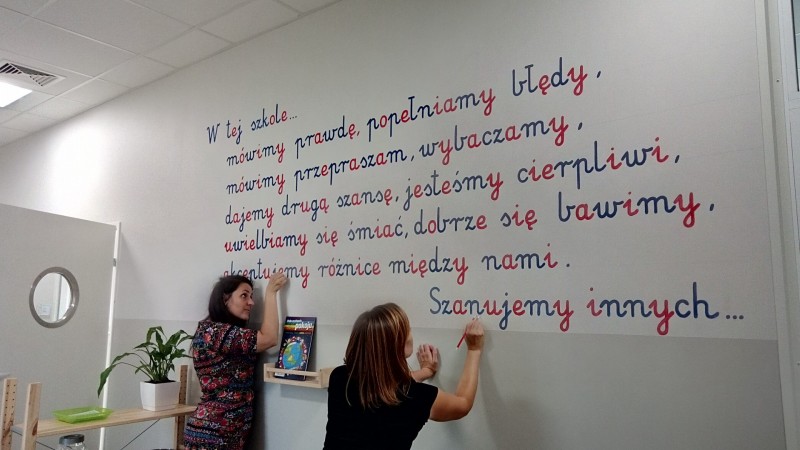 W tej szkole...
mówimy prawdę, popełniamy błędy,
mówimy przepraszam, wybaczamy,
dajemy drugą szansę, jesteśmy cierpliwi,
uwielbiamy się śmiać, dobrze się bawimy,
akceptujemy różnice między nami.
Szanujemy innych...
pokoju